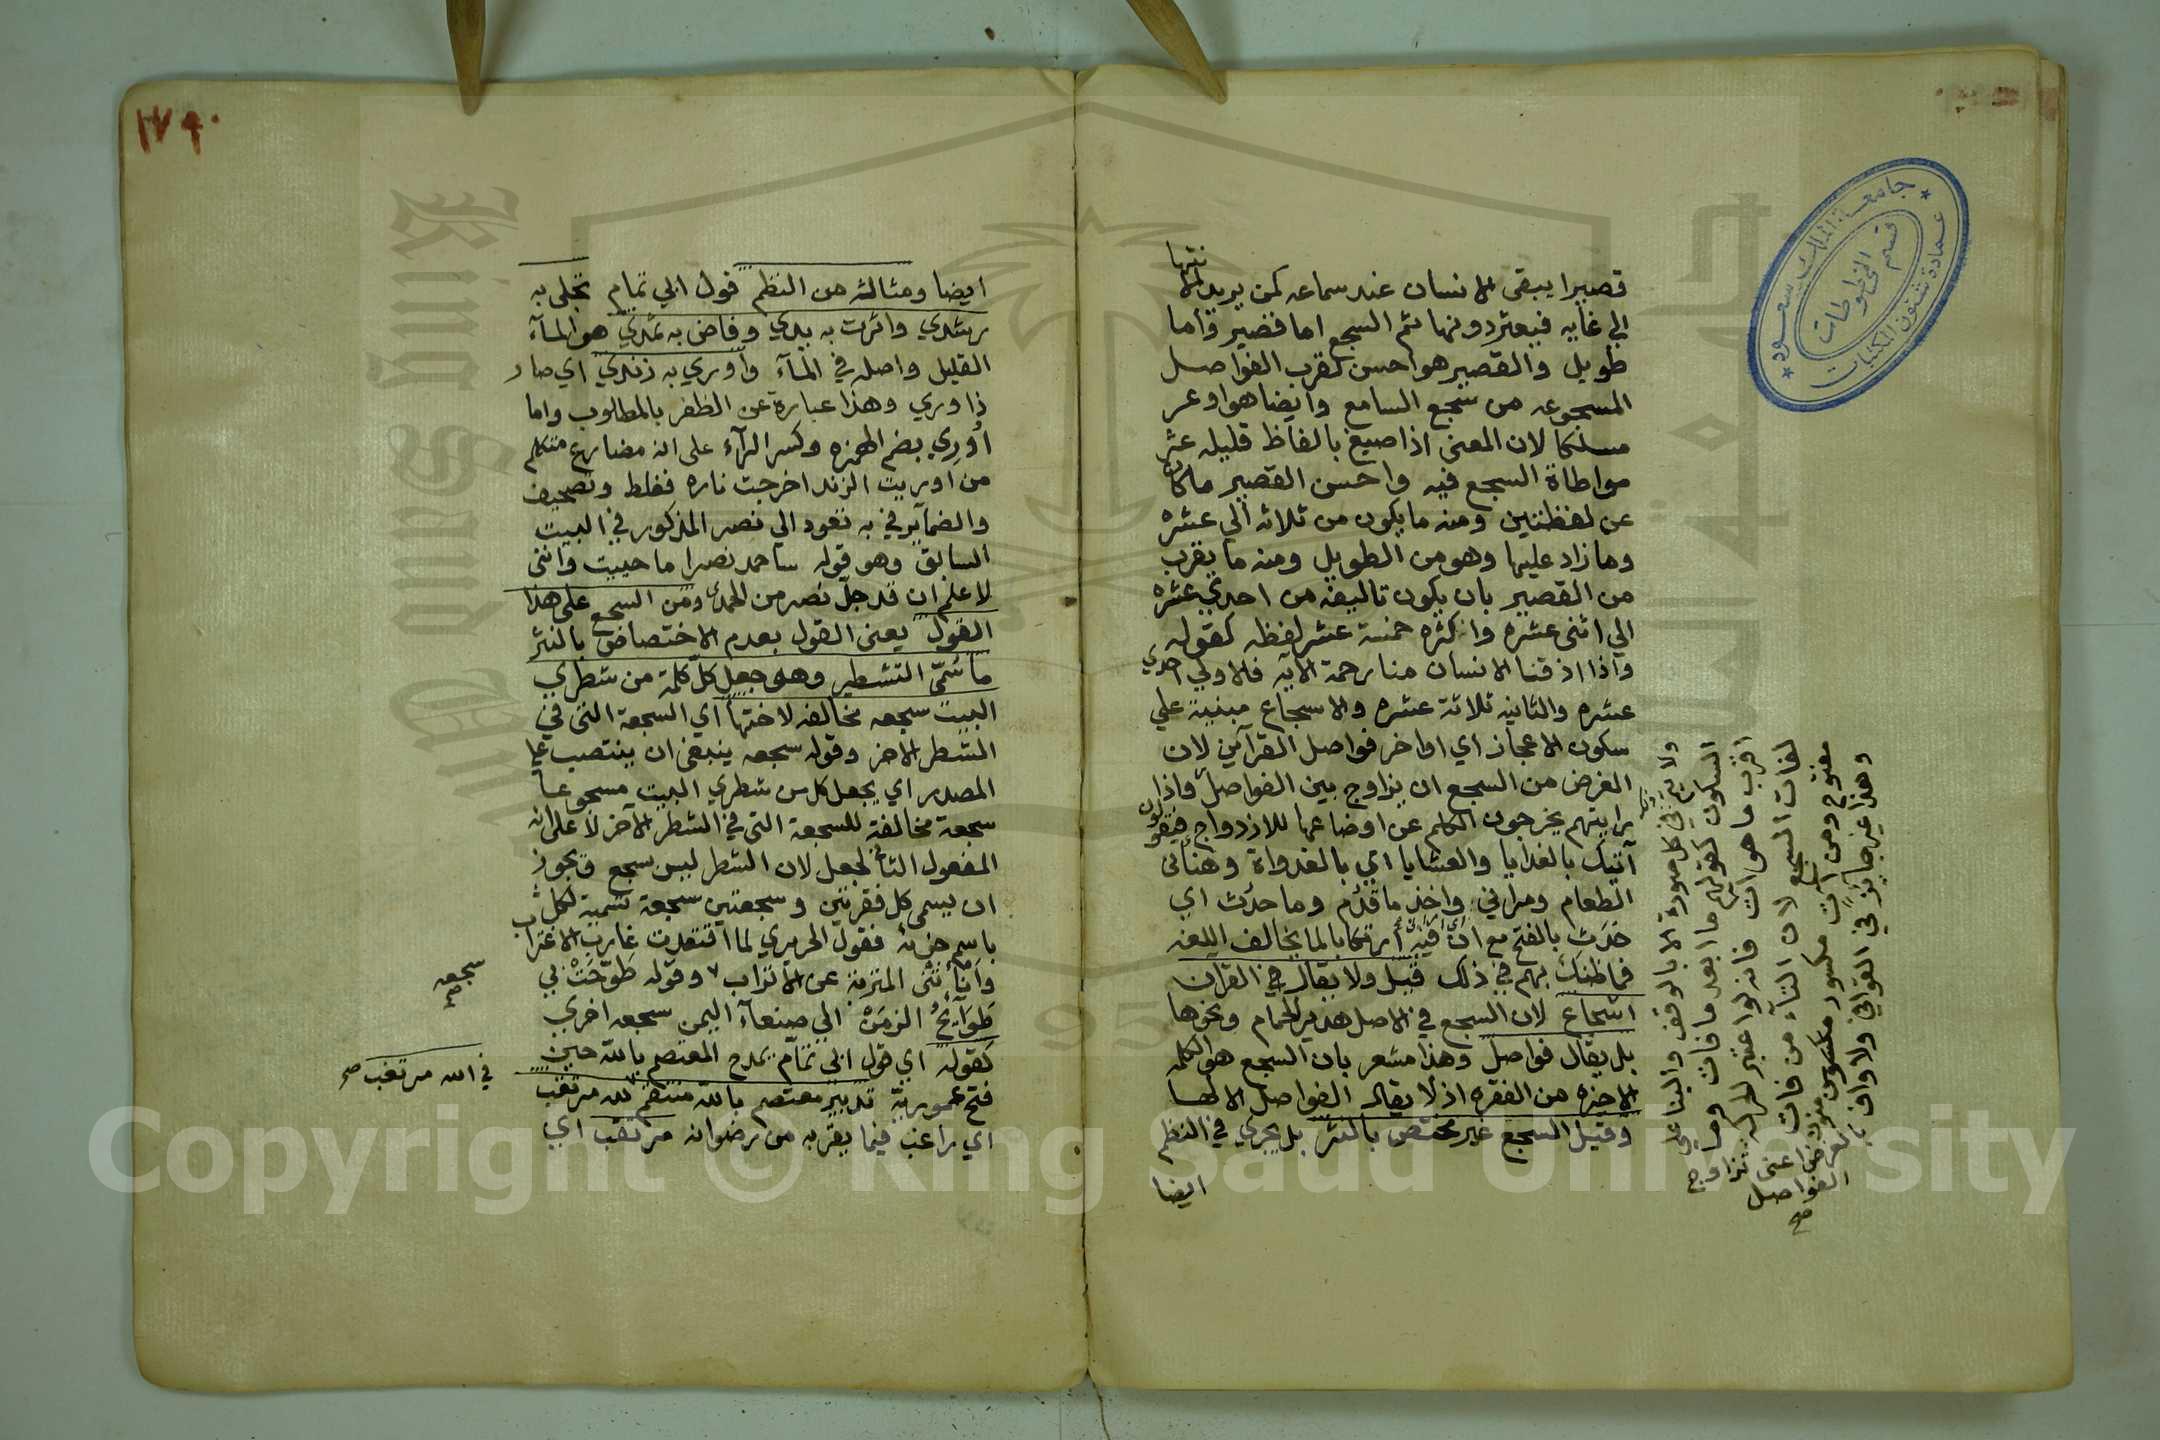 قصيرا يبقى الانسان عند سماعه كمن يريد الانتهاء
الي غايه فيعثر دونها ثم السجع اما قصير واما
طويل والقصير هو احسن لقرب الفواصل
المسجوعه من سجع السامع وايضا هو اوعر
مسلكا لان المعنى اذا صيغ بالفاظ قليله عثر
مواطاة السجع فيه واحسن القصير ما كان
من لفظتين ومنه ما يكون من ثلاثه الي عشره
وما زاد عليها وهو من الطويل ومنه ما يقرب
من القصير بان يكون تاليفه من احدي عشره
الي اثنى عشره واكثره خمسة عشر لفظه كقوله
واذا اذقنا الانسان منا رحمة الايه فالاولي احدي
عشره والثانيه ثلاثة عشره والاسجاع مبنية علي
سكون الاعجاز اي اواخر فواصل القرآين لان
الغرض من السجع ان يزاوج بين الفواصل واذا
رايتهم يخرجون الكلم عن اوضاعها للازدواج فيقولون
آتيك بالغدايا والعشايا اي بالغدواة وهنأنى
الطعام ومرانى واخذ ما قدُم وما حدُث اي
حَدَث بالفتح مع ان فيه ارتكابا لما يخالف اللغه
فما ظنك بهم في ذلك قيل ولا يقال في القرآن
اسجاع لان السجع في الاصل هدير الحمام ونحوها
بل يقال فواصل وهذا مشعر بان السجع هو الكلمه
الاخيره من الفقره اذ لا يقال الفواصل الا لها
وقيل السجع غير مختص بالنثر بل يجري في النظم
ايضا
ولا يتم في كل صورة الا بالوقف والبنا على
السكون كقولهم ما ابعد ما فات وما
اقرب ما هو ات فانه لو اعتبر الحركه
لفات السجع لان التاء من فات
مفتوح ومن ات مكسور منون
وهذا غير جايز في القوافي ولا واف بالغرض اعنى تزاوج
الفواصل
صح
١٧٩
ايضا ومثاله من النظم قول ابي تمام تجلى به
رشدي واثرت به يدي وفاض به ثمدي هو المآء
القليل واصله في المآء واوري به زندي اي صار
ذا وري وهذا عبارة عن الظفر بالمطلوب واما
اُورِي بضم الهمزه وكسر الرآء على انه مضارع متكلم
من اوريت الزند اخرجت ناره فغلط وتصحيف
والضماير في به تعود الي نصر المذكور في البيت
السابق وهو قوله ساحمد نصرا ما حييت واننى
لاعلم ان قد جل نصر من الحمد ومن السجع على هذا
القول يعنى القول بعدم الاختصاص بالنثر
ما سُمّي التشطير وهو جعل كل كلمة من شطري
البيت سجعه مخالفه لاختها اي السجعة التى في
الشطر الاخر وقوله سجعه ينبغى ان ينتصب على
المصدر اي يجعل كل من شطري البيت مسجوعا
سجعة مخالفة للسجعة التى في الشطر الآخر لا على انه
المفعول الثانى لجعل لان الشطر ليس سجع ويجوز
ان يسمى كل فقرتين وسجعتين سجعة تسمية لكل
باسم جزئه فقول الحريري لما اقتعدت غارب الاغتراب
وانأتنى المتربة عن الاتراب وقوله طَوّحَتْ بي
طَوَآئِحُ الزمَن الي صنعآء اليمن سجعه اخري
كقوله اي قول ابي تمام يمدح المعتصم بالله حين
فتح عمورية تدبير معتصم بالله منتقم لله مرتغب
اي راغب فيما يقربه من رضوانه مرتقب اي
سجعه
صح
في الله مرتغب صح
جامعة الملك سعود
عمادة شئون المكتبات
قسم المخطوطات
Copyright © King Saud University